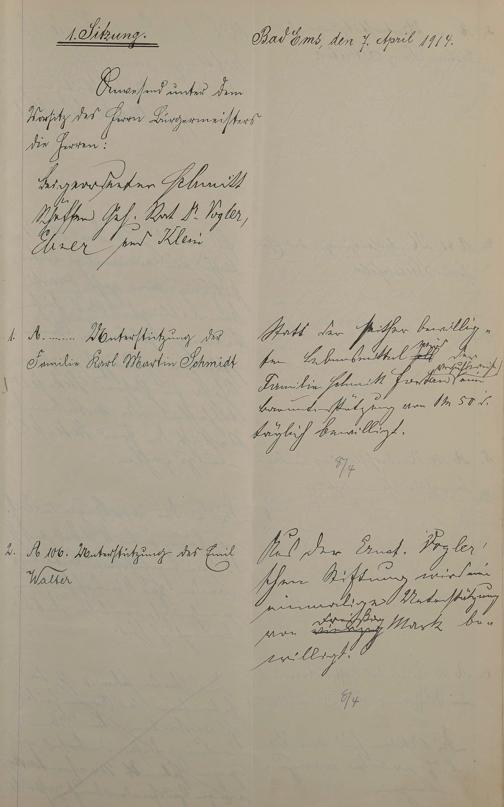 1. Sitzung.
Bad Ems, den 7. April 1914.
Anwesend unter dem
Vorsitz des Herrn Bürgermeisters
die Herren:
Beigeordneter Schmitt
Schöffen Geh. Rat Dr. Vogler,
Ebner und Klein
1. A........ Unterstützung der
Familie Karl Martin Schmidt
Statt der seither bewillig-
ten Lebensmittel wird der
Familie Schmitt eine
Barunterstützung von 1 M 50 d.
täglich bewilligt.
8/4
2. A 106. Unterstützung des Emil
Walter
Aus der Ernst. Vogler'
schen Stiftung wird eine
einmalige Unterstützung
von dreißig Mark be-
willigt.
8/4